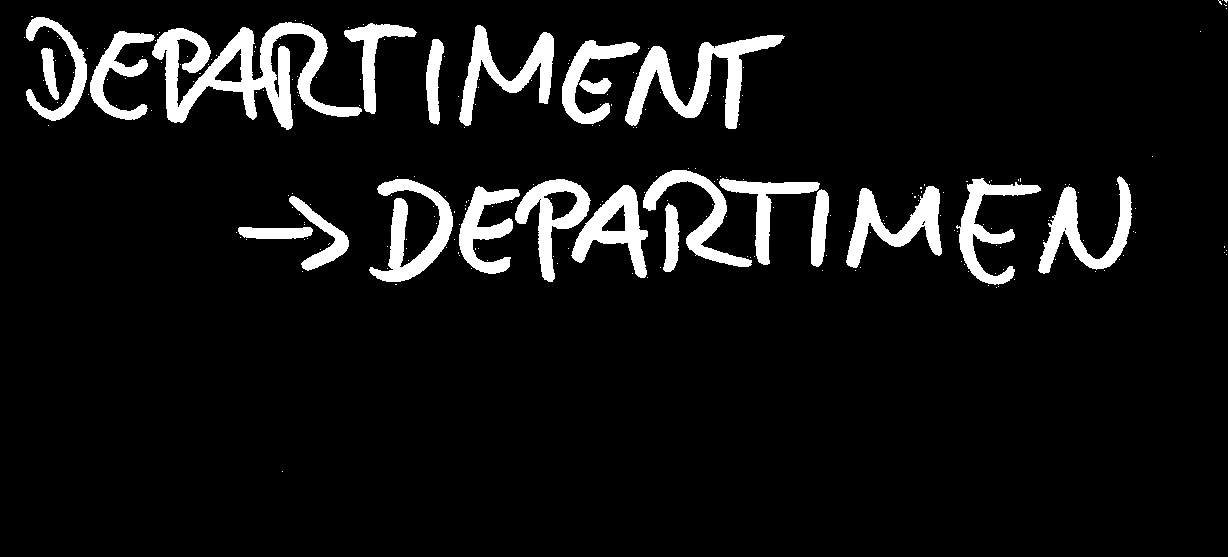 DEPARTIMENT
→ DEPARTIMEN